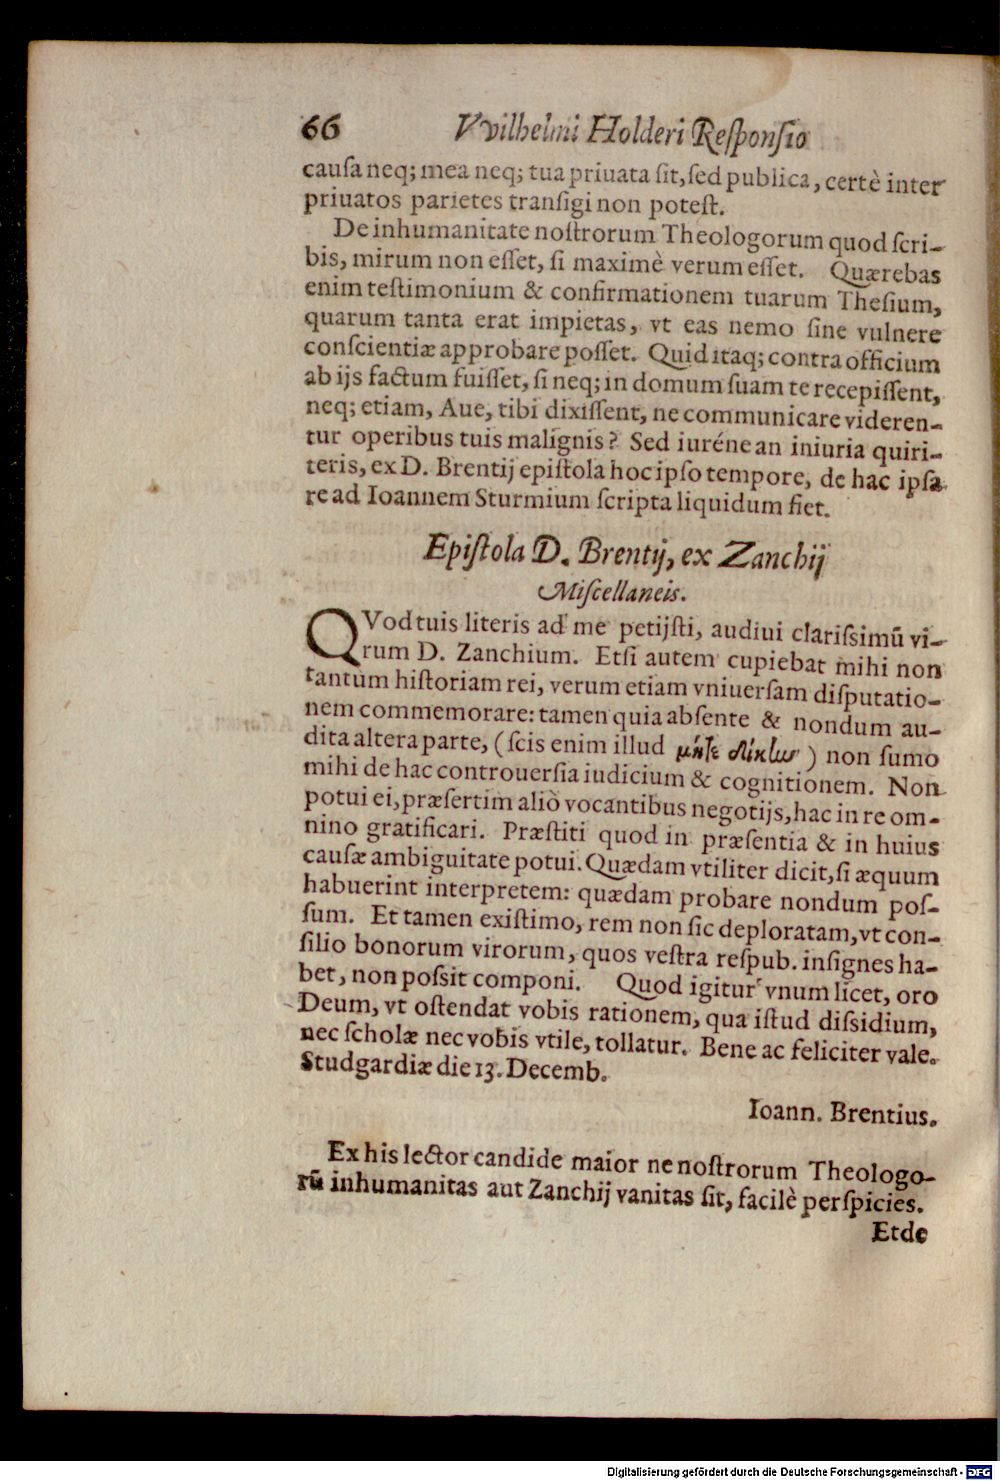 66 VVilhelmi Holderi Reſponſio
cauſa neq; mea neq; tua priuata ſit, ſed publica, certè inter
priuatos parietes tranſigi non poteſt.
De inhumanitate noſtrorum Theologorum quod ſcri-
bis, mirum non eſſet, ſi maximè verum eſſet. Quærebas
enim teſtimonium & confirmationem tuarum Theſium,
quarum tanta erat impietas, vt eas nemo ſine vulnere
conſcientiæ approbare poſſet. Quid itaq; contra officium
ab ijs factum fuiſſet, ſi neq; in domum ſuam te recepiſſent,
neq; etiam, Aue, tibi dixiſſent, ne communicare videren-
tur operibus tuis malignis? Sed iuréne an iniuria quiri-
teris, ex D. Brentij epiſtola hoc ipſo tempore, de hac ipſa
re ad Ioannem Sturmium ſcripta liquidum fiet.
Epiſtola D. Brentij, ex Zanchij
Miſcellaneis.
QVod tuis literis ad me petijſti, audiui clariſsimũ vi-
rum D. Zanchium. Etſi autem cupiebat mihi non
tantum hiſtoriam rei, verum etiam vniuerſam diſputatio-
nem commemorare: tamen quia abſente & nondum au-
dita altera parte, (ſcis enim illud μήτε δίκην) non ſumo
mihi de hac controuerſia iudicium & cognitionem. Non
potui ei, præſertim aliò vocantibus negotijs, hac in re om-
nino gratificari. Præſtiti quod in præſentia & in huius
cauſæ ambiguitate potui. Quædam vtiliter dicit, ſi æquum
habuerint interpretem: quædam probare nondum poſ-
ſum. Et tamen exiſtimo, rem non ſic deploratam, vt con-
ſilio bonorum virorum, quos veſtra reſpub. inſignes ha-
bet, non poſsit componi. Quod igitur vnum licet, oro
Deum, vt oſtendat vobis rationem, qua iſtud diſsidium,
nec ſcholæ nec vobis vtile, tollatur. Bene ac feliciter vale.
Studgardiæ die 13. Decemb.
Ioann. Brentius.
Ex his lector candide maior ne noſtrorum Theologo-
rũ inhumanitas aut Zanchij vanitas ſit, facilè perſpicies.
Et de
Digitalisierung gefördert durch die Deutsche Forschungsgemeinschaft - DFG